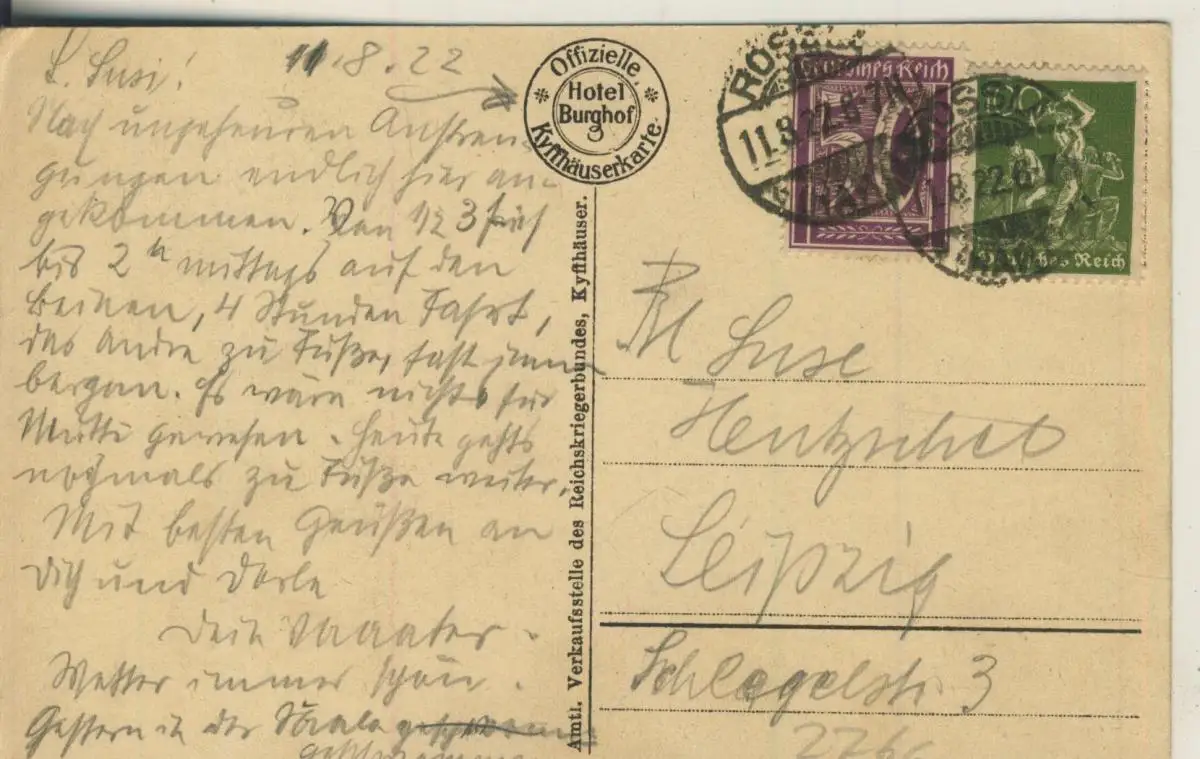 L. Susi! 11.8.22
Nach ungeheuren Anstren-
gungen endlich hier an-
gekommen. Von 1/2 3 früh
bis 2 h mittags auf den
Beinen, 4 Stunden Fahrt,
das Andre zu Fuße, fast immer
bergan. Es wäre nichts für
Mutti gewesen. Heute gehts
nochmals zu Fuße weiter.
Mit besten Grüßen an
Dich und Dorle
Dein Vaater.
Wetter immer schön.
Gestern in der Saale
geschwommen
Offizielle
Hotel
Burghof
Kyffhäuserkarte
Amtl. Verkaufsstelle des Reichskriegerbundes, Kyffhäuser.
Deutsches Reich
11.8.22.8-
8.22.6-
Deutsches Reich
Frl Suse
Hentzschel
Leipzig
Schlegelstr. 3